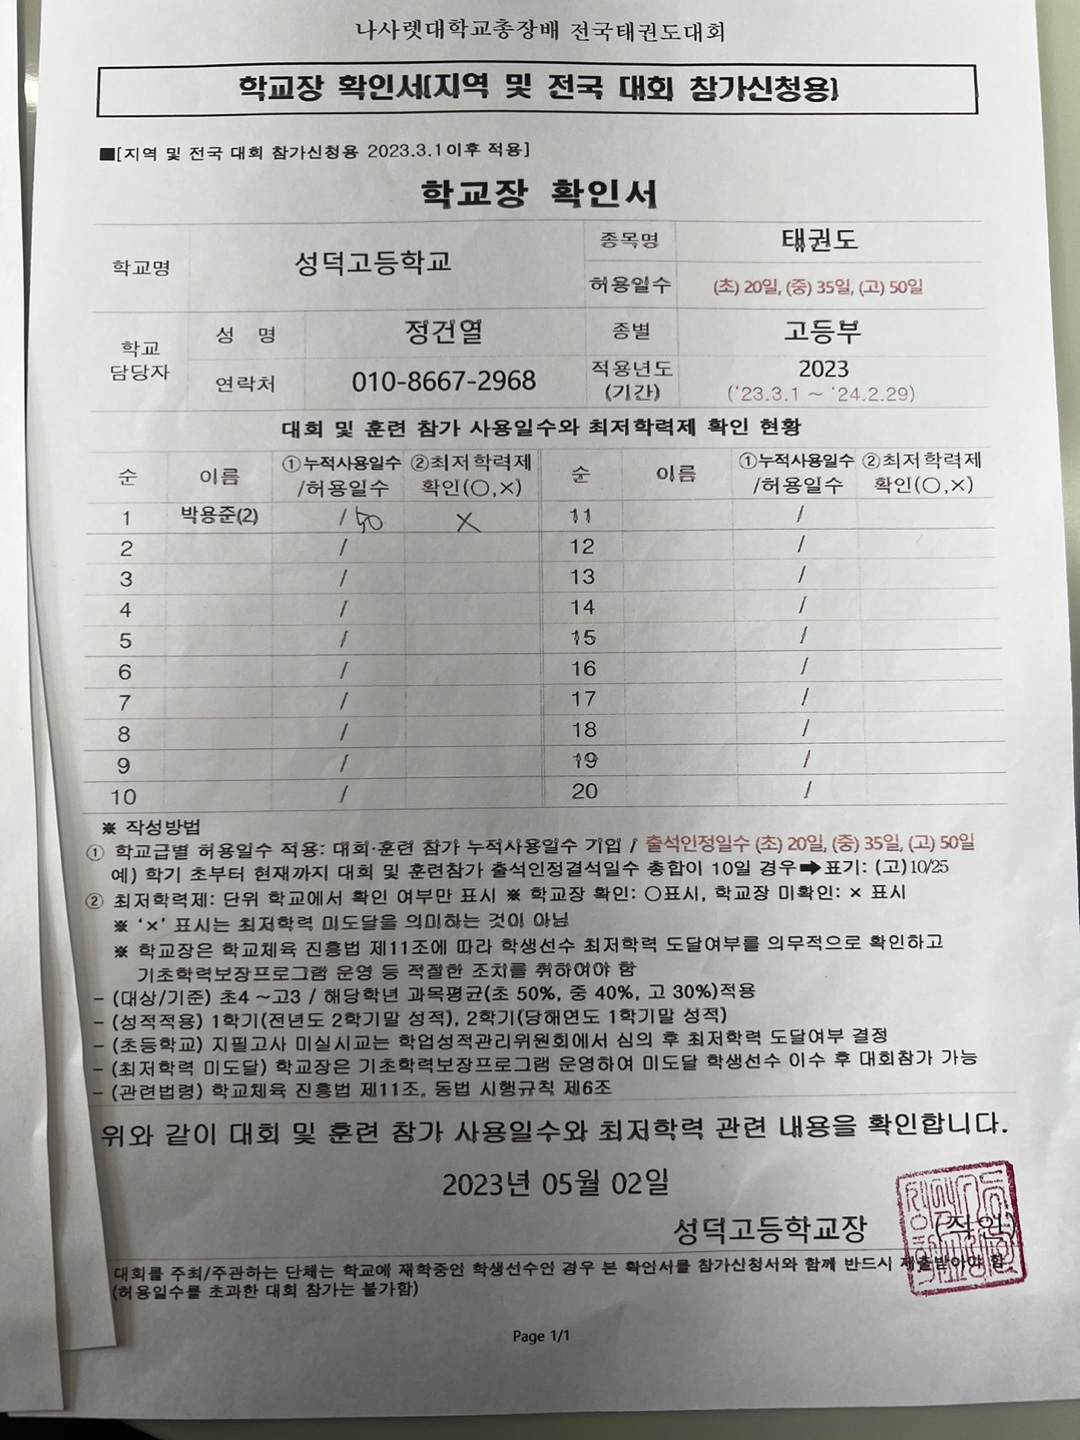 나사렛대학교총장배 전국태권도대회
학교장 확인서(지역 및 전국 대회 참가신청용)
■[지역 및 전국 대회 참가신청용 2023.3.1이후 적용]
학교장 확인서
학교명 성덕고등학교 종목명 태권도
허용일수 (초) 20일, (중) 35일, (고) 50일
학교 담당자 성 명 정건열 종별 고등부
연락처 010-8667-2968 적용년도 (기간) 2023 ('23.3.1 ~ '24.2.29)
대회 및 훈련 참가 사용일수와 최저학력제 확인 현황
순 이름 ①누적사용일수 /허용일수 ②최저학력제 확인(○,×) 순 이름 ①누적사용일수 /허용일수 ②최저학력제 확인(○,×)
1 박용준(2) / 50 × 11 /
2 / 12 /
3 / 13 /
4 / 14 /
5 / 15 /
6 / 16 /
7 / 17 /
8 / 18 /
9 / 19 /
10 / 20 /
※ 작성방법
① 학교급별 허용일수 적용: 대회·훈련 참가 누적사용일수 기입 / 출석인정일수 (초) 20일, (중) 35일, (고) 50일
예) 학기 초부터 현재까지 대회 및 훈련참가 출석인정결석일수 총합이 10일 경우➡표기: (고)10/25
② 최저학력제: 단위 학교에서 확인 여부만 표시 ※ 학교장 확인: ○표시, 학교장 미확인: × 표시
※ '×' 표시는 최저학력 미도달을 의미하는 것이 아님
※ 학교장은 학교체육 진흥법 제11조에 따라 학생선수 최저학력 도달여부를 의무적으로 확인하고
기초학력보장프로그램 운영 등 적절한 조치를 취하여야 함
- (대상/기준) 초4 ~고3 / 해당학년 과목평균(초 50%, 중 40%, 고 30%)적용
- (성적적용) 1학기(전년도 2학기말 성적), 2학기(당해연도 1학기말 성적)
- (초등학교) 지필고사 미실시교는 학업성적관리위원회에서 심의 후 최저학력 도달여부 결정
- (최저학력 미도달) 학교장은 기초학력보장프로그램 운영하여 미도달 학생선수 이수 후 대회참가 가능
- (관련법령) 학교체육 진흥법 제11조, 동법 시행규칙 제6조
위와 같이 대회 및 훈련 참가 사용일수와 최저학력 관련 내용을 확인합니다.
2023년 05월 02일
성덕고등학교장 (직인)
대회를 주최/주관하는 단체는 학교에 재학중인 학생선수인 경우 본 확인서를 참가신청서와 함께 반드시 제출받아야 함
(허용일수를 초과한 대회 참가는 불가함)
Page 1/1